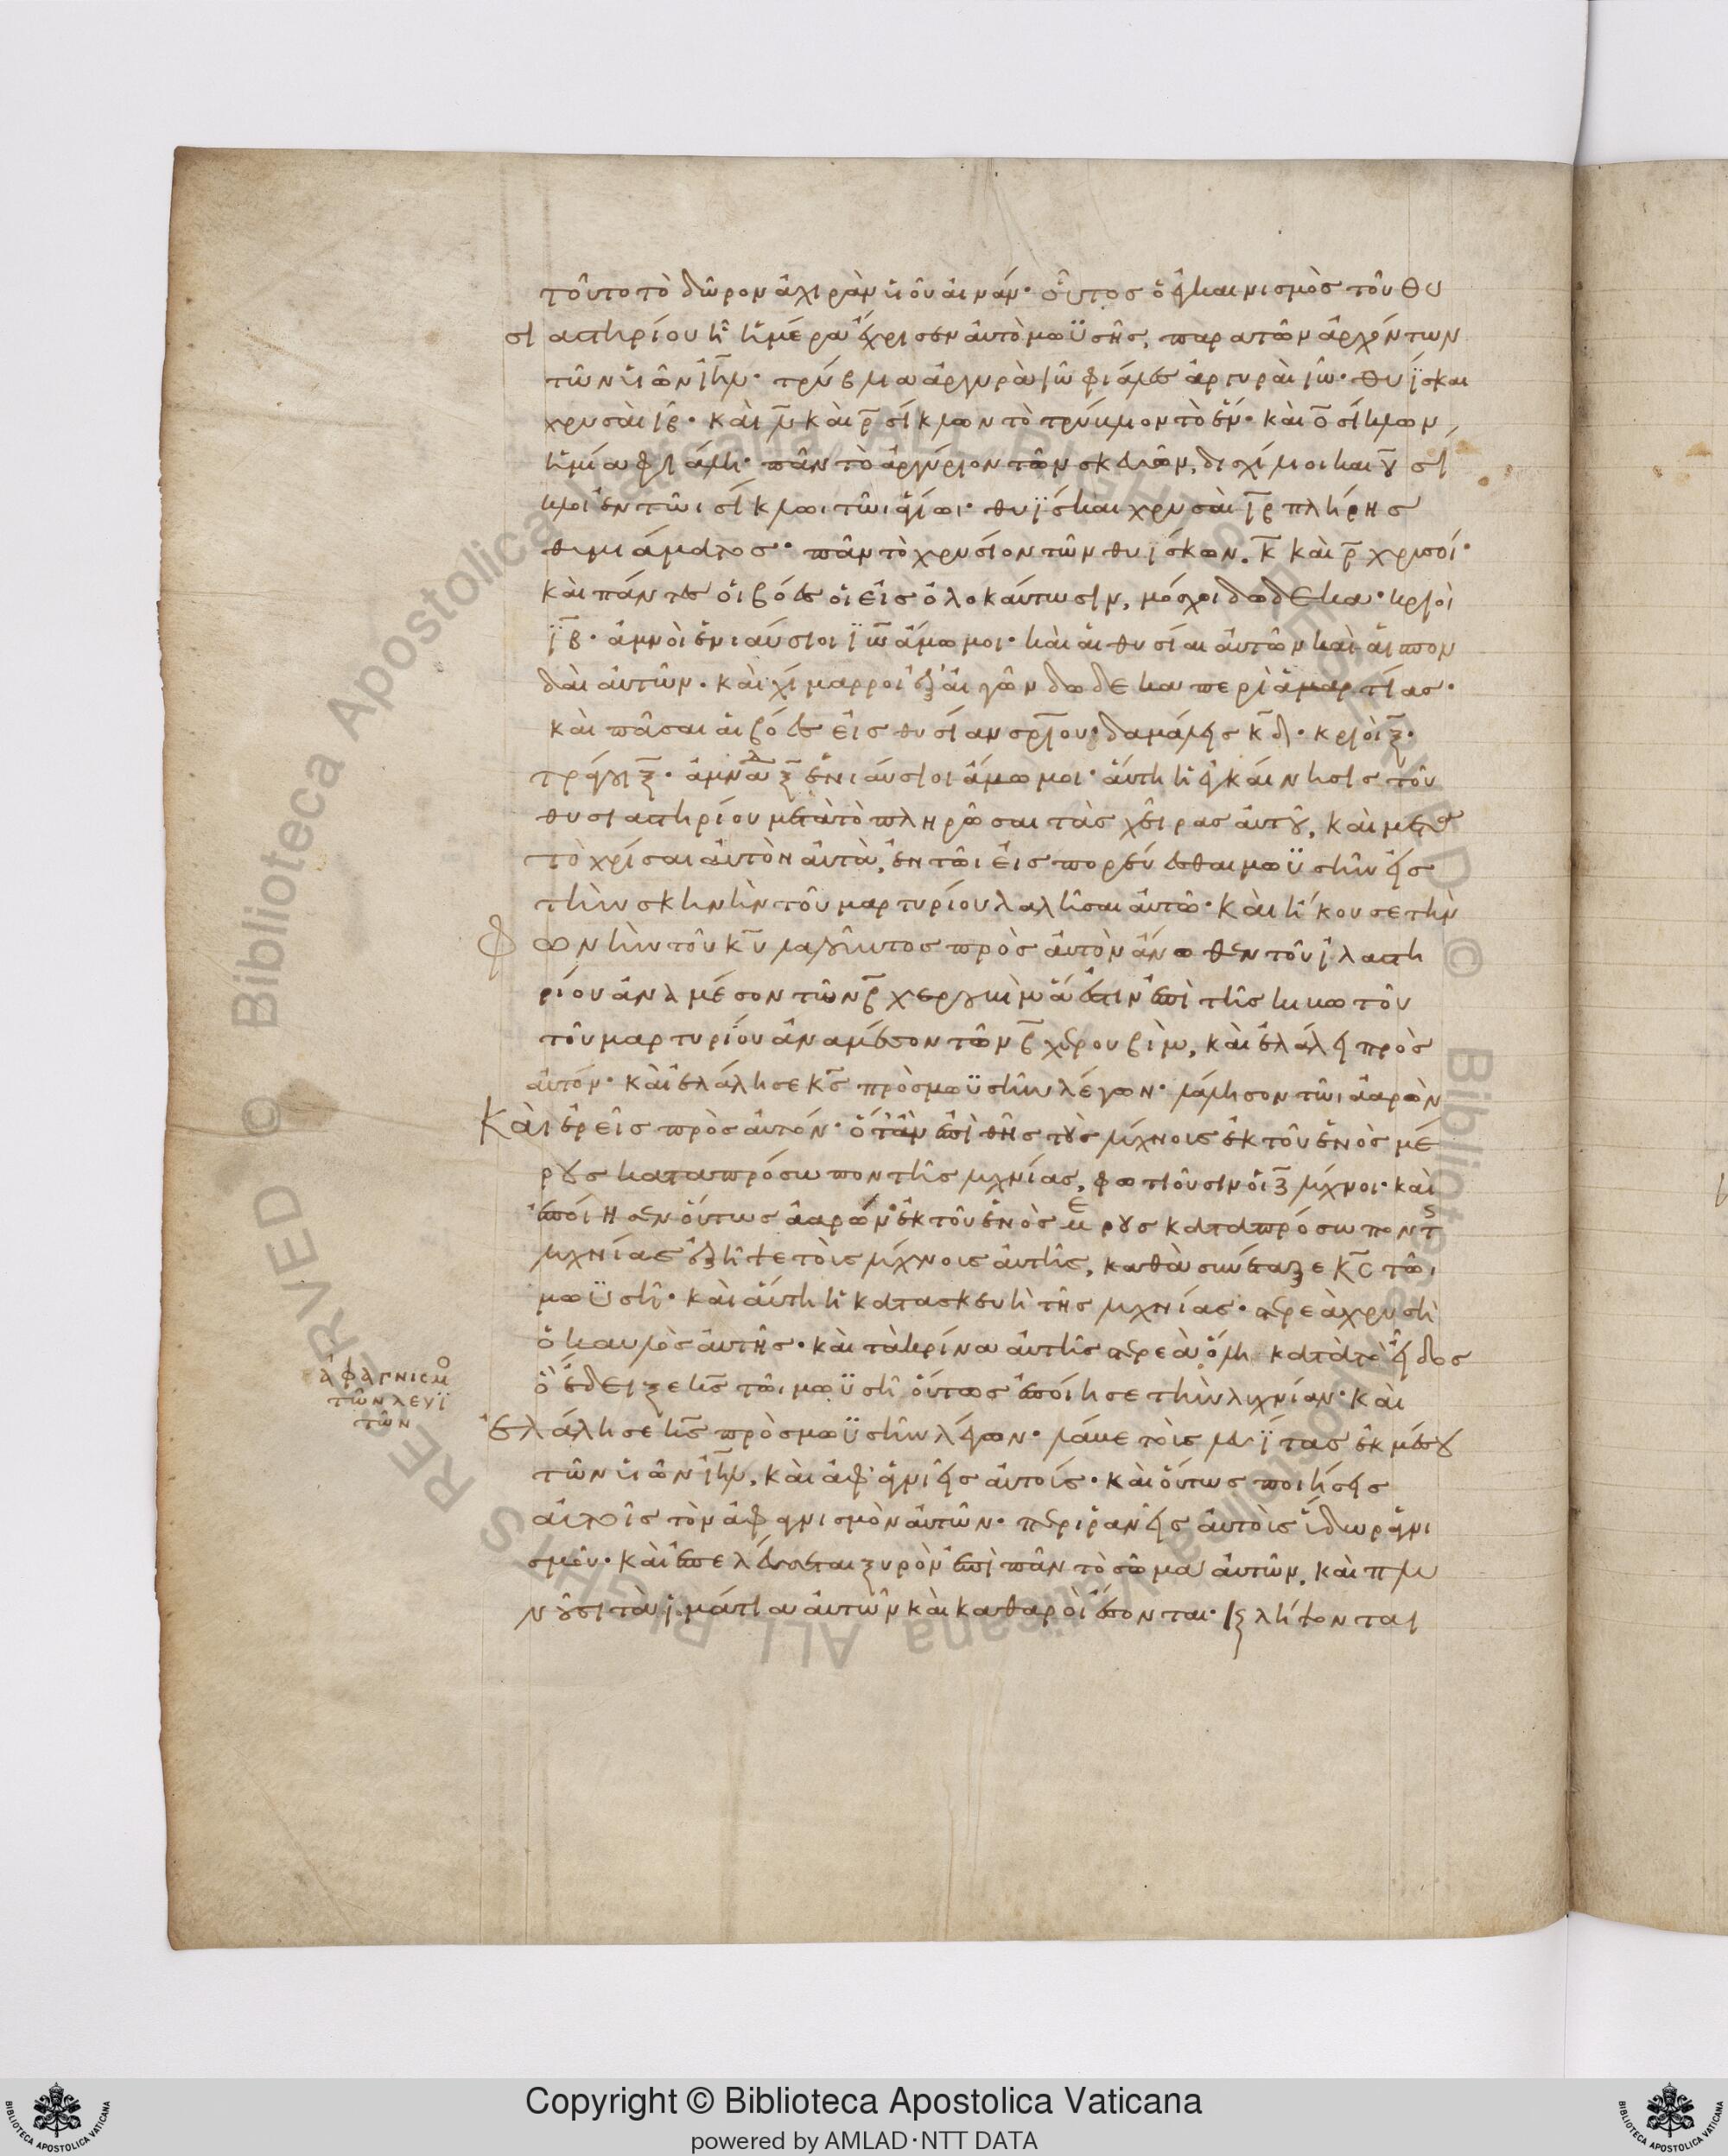 τοῦτο τὸ δῶρον ἀχιρὰν ὑιοῦ αἰνάν· οὗτος ὁ ἐγκαινισμὸς τοῦ θυ
σιαστηρίου ἧ ἡμέρα ἔχρισεν αὐτὸ μωϋσῆς, παρα τῶν ἀρχόντων
τῶν ὑιῶν ιῆλ· τρύβλια ἀργυρὰ ιβ φιάλαι ἀργυραὶ ιβ· θυΐσκαι
χρυσαὶ ιβ· καὶ λ καὶ ρ σίκλων τὸ τρύβλιον τὸ ἕν· καὶ ο σίκλων
ἡ μία φιάλη· πᾶν τὸ ἀργύριον τῶν σκευῶν, δισχίλιοι καὶ υ σί
κλοι ἐν τῶι σίκλωι τῶι ἁγίωι· θυΐσκαι χρυσαὶ ιβ πλήρης
θυμιάματος· πᾶν τὸ χρυσίον τῶν θυϊσκων, κ καὶ ρ χρυσοί·
καὶ πάντες οἱ βόες οἱ εἰς ὁλοκάυτωσιν, μόσχοι δώδεκα· κριοὶ
ιβ· ἀμνοὶ ἐνιαύσιοι ιβ ἄμωμοι· καὶ αἱ θυσίαι αὐτῶν καὶ αἱ σπον
δαὶ αὐτῶν· καὶ χίμαρροι ἐξ αἰγῶν δώδεκα περὶ ἁμαρτίας·
καὶ πᾶσαι αἱ βόες εἰς θυσίαν σρίου· δαμάλεις κδ· κριοὶ ξ·
τράγοι ξ· ἀμνάδες ξ ἐνιαύσιοι ἄμωμοι· αὕτη ἡ ἐγκαίνησις τοῦ
θυσιαστηρίου μετὰ τὸ πληρῶσαι τὰς χεῖρας αὐτοῦ, καὶ μετὰ
τὸ χρίσαι αὐτὸν αὐτὰ, ἐν τῶι εἰσπορεύεσθαι μωϋσῆν εἰς
τὴν σκηνὴν τοῦ μαρτυρίου λαλῆσαι αὐτῶ· καὶ ἤκουσε τὴν
φωνὴν τοῦ κυ λαλοῦντος πρὸς αὐτὸν ἄνωθεν τοῦ ἱλαστη
ρίου ἀνὰ μέσον τῶν β χερουβὶμ ἅ ἐστιν ἐπὶ τῆς κιβωτοῦ
τοῦ μαρτυρίου ἀναμέσον τῶν β χερουβὶμ, καὶ ἐλάλει πρὸς
αὐτόν· καὶ ἐλάλησε κς πρὸς μωϋσῆν λέγων· λάλησον τῶι ἀαρὼν
καὶ ἐρεῖς πρὸς αὐτόν· ὅταν ἐπιθῆς τοὺς λύχνοις ἐκ τοῦ ἑνὸς μέ
ρους κατα πρόσωπον τῆς λυχνίας, φωτιοῦσιν οἱ ζ λύχνοι· καὶ
ἐποίησεν οὕτως ἀαρών· ἐκ τοῦ ἑνὸς μέρους καταπρόσωπον τς
λυχνίας ἐξῆψε τοὶς λύχνοις αὐτῆς, καθὰ συνέταξε κς τῶι
μωϋσῆ· καὶ αὕτη ἡ κατασκευὴ τῆς λυχνίας· στερεὰ χρυσὴ
ὁ καυλὸς αὐτῆς· καὶ τὰ κρίνα αὐτῆς στερεὰ ὅλη κατὰ τὸ εἶδος
ὃ ἔδειξε κς τῶι μωϋσῆ οὕτως ἐποίησε τὴν λυχνίαν· καὶ
ἐλάλησε κς πρὸς μωϋσῆν λέγων· λάβε τοὶς λευΐτας ἐκ μέσου
τῶν ὑιῶν ιῆλ, καὶ ἀφαγνιεῖς αὐτοίς· καὶ οὕτως ποιήσεις
αὐτοῖς τὸν ἀφαγνισμὸν αὐτῶν· περιρανεῖς αὐτοὶς ὕδωρ ἁγνι
σμοῦ· καὶ ἐπελεύσεται ξυρὸν ἐπὶ πᾶν τὸ σῶμα αὐτῶν, καὶ πλυ
νοῦσι τὰ ἱμάτια αὐτῶν καὶ καθαροὶ ἔσονται· κς λήψονται
ἀφαγνισμο
τῶν λευϊ
τῶν
© Biblioteca Apostolica Vaticana ALL RIGHTS RESERVED © Biblioteca Apostolica Vaticana ALL RIGHTS RESERVED
Copyright © Biblioteca Apostolica Vaticana
powered by AMLAD·NTT DATA
BIBLIOTECA APOSTOLICA VATICANA
BIBLIOTECA APOSTOLICA VATICANA